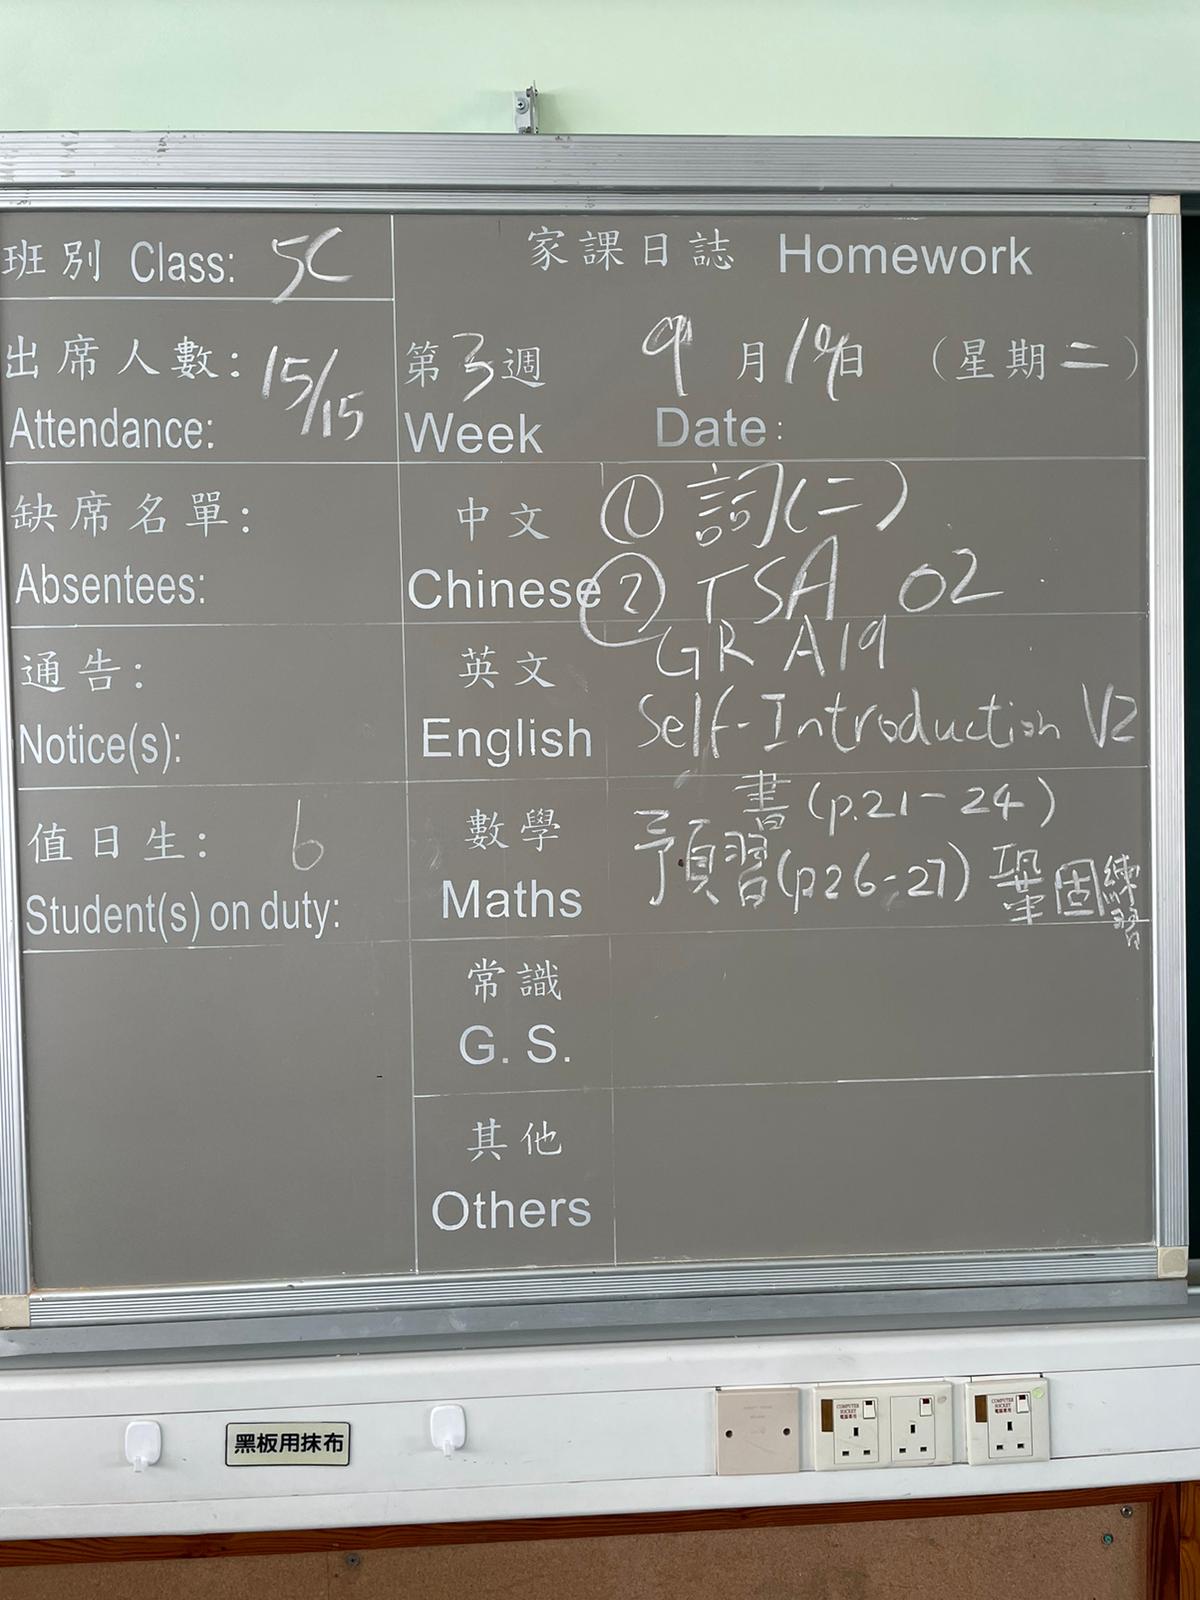 班別 Class: 5C
出席人數: 15/15
Attendance:
缺席名單:
Absentees:
通告:
Notice(s):
值日生: 6
Student(s) on duty:
家課日誌 Homework
第3週 9月19日 (星期二)
Week Date:
中文 ① 詞(二)
Chinese ② TSA 02
英文 GR A19
English Self-Introduction V2
數學 書(p.21-24)
Maths 預習(p26-27) 鞏固練習
常識
G. S.
其他
Others
黑板用抹布
COMPUTER SOCKET 電腦專用
COMPUTER SOCKET 電腦專用
COMPUTER SOCKET 電腦專用